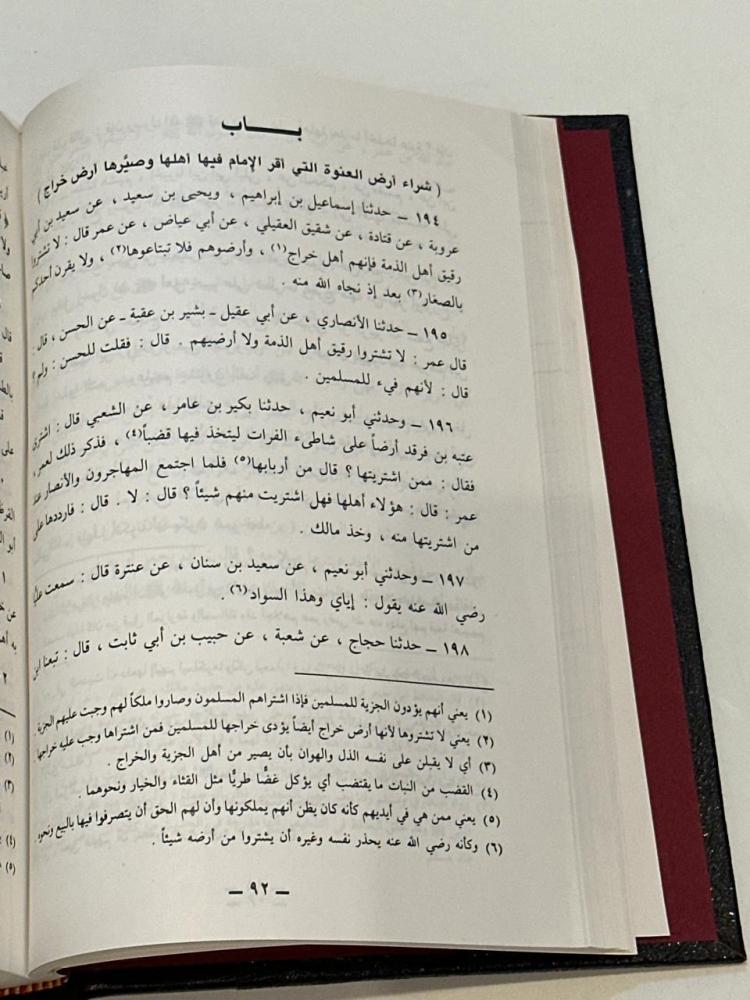 بـــاب
( شراء أرض العنوة التي أقر الإمام فيها أهلها وصيَّرها أرض خراج )
١٩٤ ــ حدثنا إسماعيل بن إبراهيم ، ويحيى بن سعيد ، عن سعيد بن أبي
عروبة ، عن قتادة ، عن شقيق العقيلي ، عن أبي عياض ، عن عمر قال : لا تشتروا
رقيق أهل الذمة فإنهم أهل خراج(١) ، وأرضوهم فلا تبتاعوها(٢) ، ولا يقرن أحدكم
بالصغار(٣) بعد إذ نجاه الله منه .
١٩٥ ــ حدثنا الأنصاري ، عن أبي عقيل ـ بشير بن عقبة ـ عن الحسن ، قال .
قال عمر : لا تشتروا رقيق أهل الذمة ولا أرضيهم . قال : فقلت للحسن : ولم ؟
قال : لأنهم فيء للمسلمين .
١٩٦ ــ وحدثني أبو نعيم ، حدثنا بكير بن عامر ، عن الشعبي قال : اشترى
عتبه بن فرقد أرضاً على شاطىء الفرات ليتخذ فيها قضباً(٤) ، فذكر ذلك لعمر ،
فقال : ممن اشتريتها ؟ قال من أربابها(٥) فلما اجتمع المهاجرون والأنصار عند
عمر : قال : هؤلاء أهلها فهل اشتريت منهم شيئاً ؟ قال : لا . قال : فارددها على
من اشتريتها منه ، وخذ مالك .
١٩٧ ــ وحدثني أبو نعيم ، عن سعيد بن سنان ، عن عنترة قال : سمعت علياً
رضي الله عنه يقول : إياي وهذا السواد(٦) .
١٩٨ ــ حدثنا حجاج ، عن شعبة ، عن حبيب بن أبي ثابت ، قال : تبعنا ابن
(١) يعني أنهم يؤدون الجزية للمسلمين فإذا اشتراهم المسلمون وصاروا ملكاً لهم وجبت عليهم الجزية .
(٢) يعني لا تشتروها لأنها أرض خراج أيضاً يؤدى خراجها للمسلمين فمن اشتراها وجب عليه خراجها
(٣) أي لا يقبلن على نفسه الذل والهوان بأن يصير من أهل الجزية والخراج .
(٤) القضب من النبات ما يقتضب أي يؤكل غضًّا طريًّا مثل القثاء والخيار ونحوهما .
(٥) يعني ممن هي في أيديهم كأنه كان يظن أنهم يملكونها وأن لهم الحق أن يتصرفوا فيها بالبيع ونحوه .
(٦) وكأنه رضي الله عنه يحذر نفسه وغيره أن يشتروا من أرضه شيئاً .
ــ ٩٢ ــ